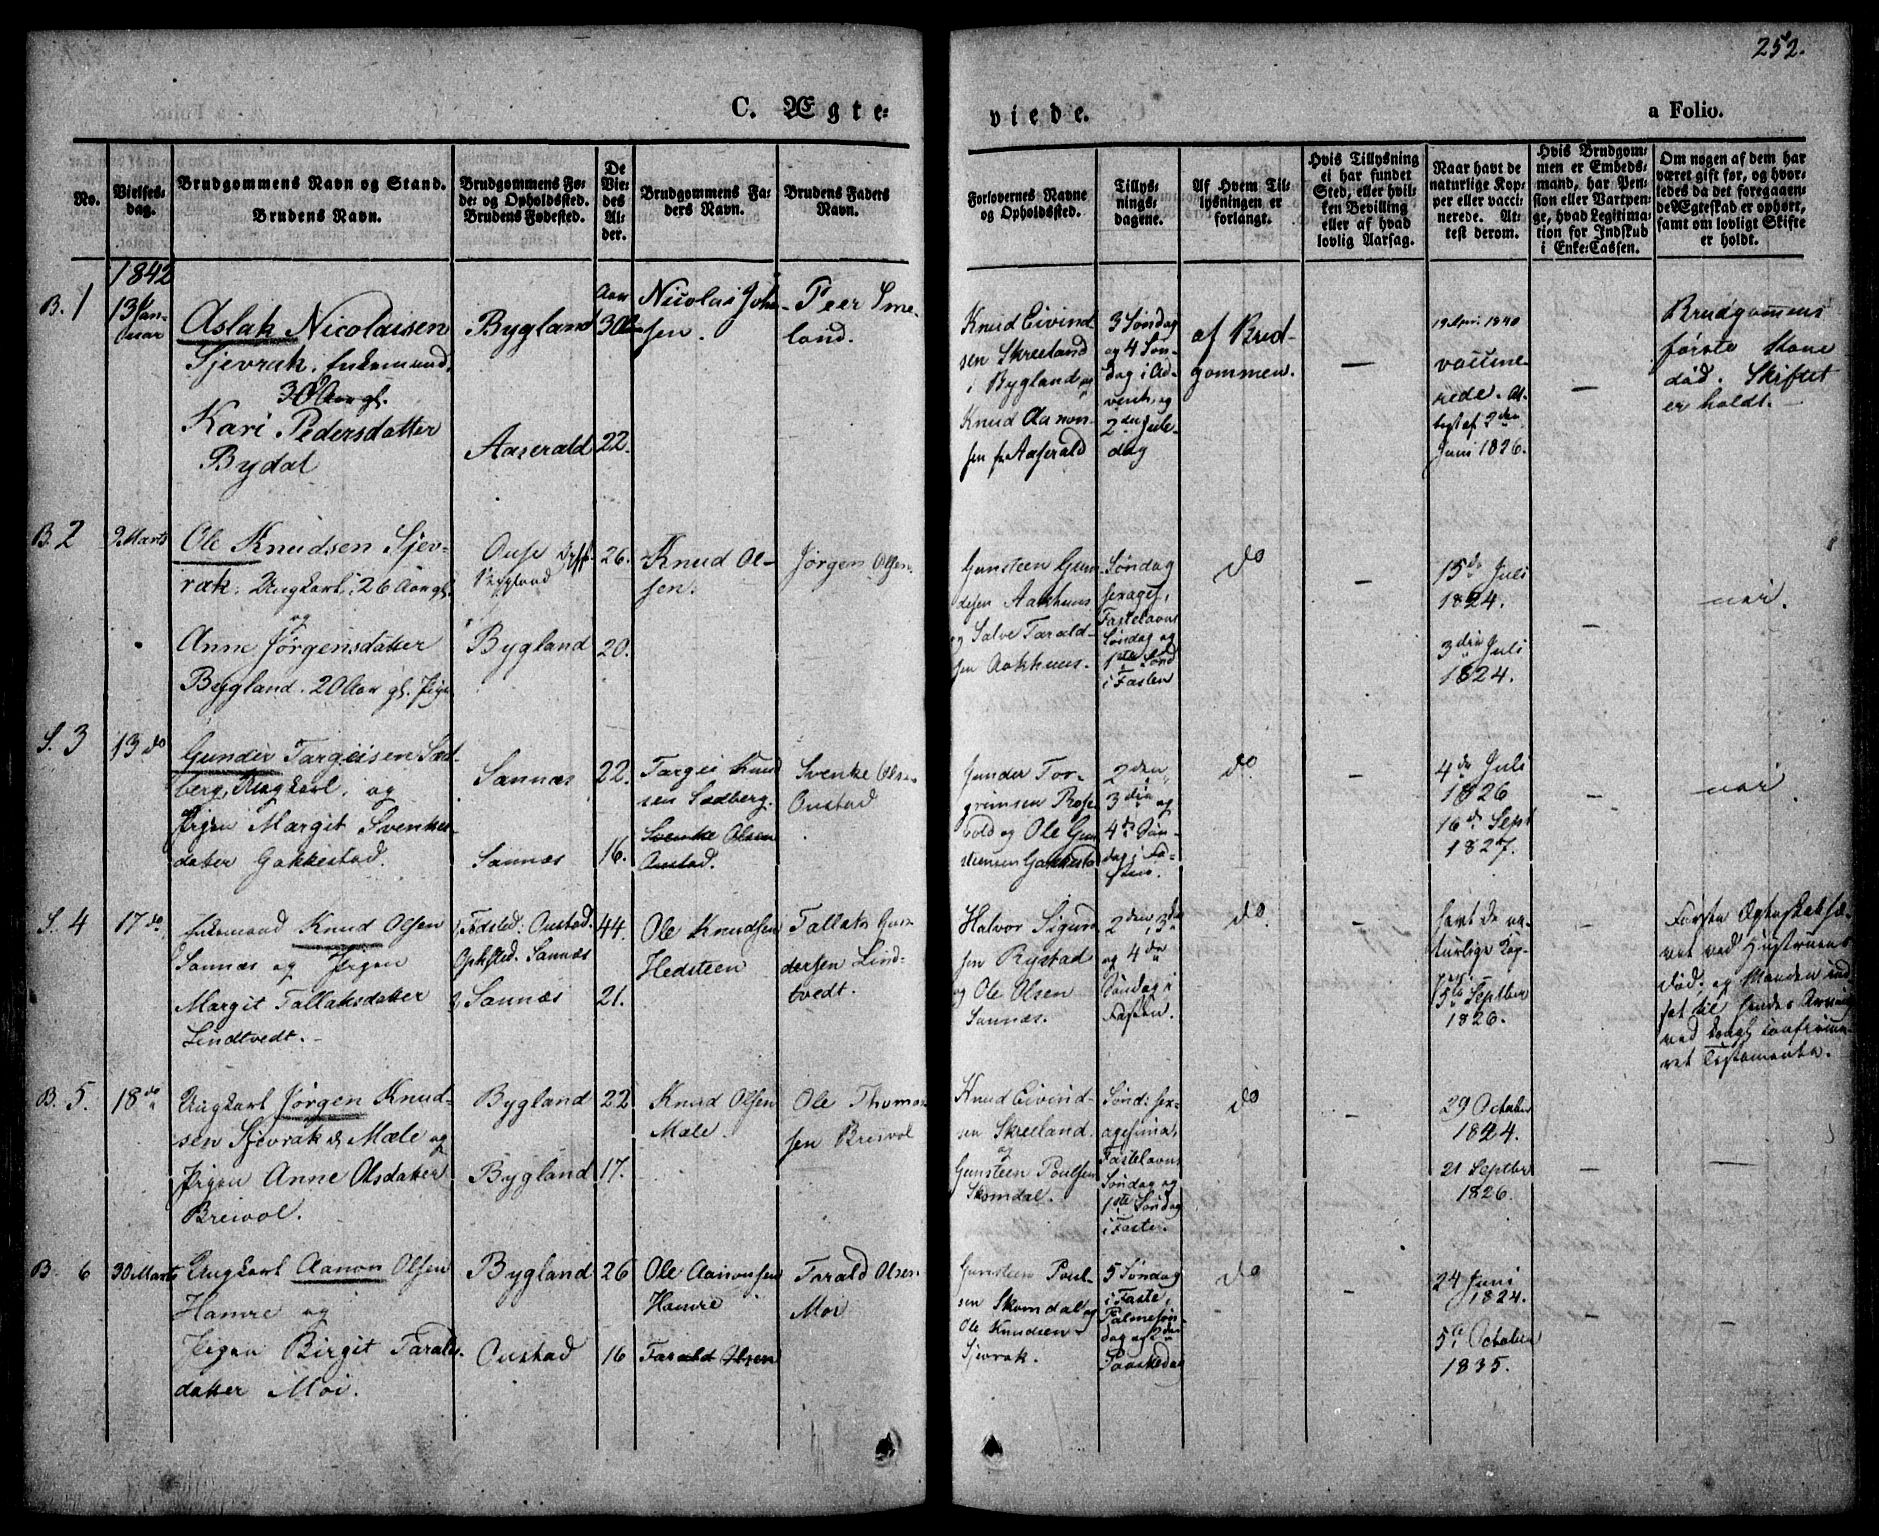 252.
C. Ægte-
viede.
a Folio.
No.
Vielses-
dag.
Brudgommens Navn og Stand.
Brudens Navn.
Brudgommens Fø-
de- og Opholdssted.
Brudens Fødested.
De
Vie-
des
Al-
der.
Brudgommens Fa-
ders Navn.
Brudens Faders
Navn.
Forlovernes Navne
og Opholdssted.
Tillys-
nings-
dagene.
Af Hvem Til-
lysningen er
forlangt.
Hvis Tillysning
ei har fundet
Sted, eller hvil-
ken Bevilling
eller af hvad
lovlig Aarsag.
Naar havt de
naturlige Kop-
per eller vacci-
nerede. At-
test derom.
Hvis Brudgom-
men er Embeds-
mand, har Pen-
sion eller Vartpen-
ge, hvad Legitima-
tion for Indskud
i Enke-Cassen.
Om nogen af dem har
været gift før, og hvor-
ledes da det foregaaen-
de Ægteskad er ophørt,
samt om lovligt Skifte
er holdt.
1842
B. 1
13 Jan-
uar
Aslak Nicolaisen
Sjevrak, Enkemand,
30 Aar gl.
Kari Pedersdatter
Bydal
Bygland
Aaserald
Aar
30
22.
Nicolai Joh-
sen.
Peer Sme-
land.
Knud Eivind-
sen Skreeland
i Bygland og
Knud Aanon-
sen fr Aaserald
3 Søndag
og 4 Søn-
dag i Ad-
vent, og
2den Jule-
dag
af Brud-
gommen.
—
19 Apr. 1840
vaccine-
rede. At-
test af 2den
Juni 1826.
—
Brudgommens
første Kone
død. Skiftet
er holdt.
B. 2
9 Marts
Ole Knudsen Sjev-
rak, Ungkarl, 26 Aar gl.
og
Anne Jørgensdatter
Bygland. 20 Aar gl. Pige
Bygland
Bygland
26.
20.
Knud Ol-
sen.
Jørgen Olsen
Gunsteen Gun-
dersen Aakhuus
og Salve Tarald-
sen Aakhuus.
Søndag
sexages,
Fastelavns
Søndag og
1ste Sønd
i Fasten
do
—
15de Juli
1824.
3die Juli
1824.
—
nei.
S. 3
13 do
Gunder Targeisen Sæd-
berg, Ungkarl, og
Pigen Margit Svenkes-
datter Gakkestad.
Sannæs
Sannæs
22.
16.
Targei Knud
sen Sædberg.
Svenke Olsen
Oustad.
Svenke Olsen
Oustad
Gunder Tor-
grimsen Rose-
vold og Ole Gun-
steensen Gakkestad
2den,
3die og
4de Søn-
dag i Fa-
sten.
do.
—
4de Juli
1826
16de Sept
1827.
—
nei.
S. 4
17 do
Enkemand Knud Olsen
Sannæs og Pigen
Margit Tallaksdatter
Lindtvedt.
Fødsted: Oustad.
Ophsted. Sannæs
Sannæs
44.
21.
Ole Knudsen
Hedsteen
Tallak Gun-
dersen Lind-
tvedt.
Halvor Sigurd
sen Rystad
og Ole Olsen
Sannæs.
2den, 3die
og 4de
Søndag i
Fasten.
do.
—
havt de na-
turlige Kop-
per
15de Septber
1826.
Første Ægteskab hæ-
vet ved Hustruens
død, og Manden ind
sat til hendes Arving
ved kongl. confirme-
ret Testamente.
B. 5.
18 do
Ungkarl Jørgen Knud-
sen Sjevrak Mæle og
Pigen Anne Olsdatter
Breivol.
Bygland
Bygland
22
17.
Knud Olsen
Mæle.
Ole Thomas
sen Breivol
Knud Eivind-
sen Skreeland.
og
Gunsteen Poulsen
Skomdal.
Sønd: sex-
agesima,
Fastelavns
Søndag og
1ste Søndag
i Faste.
do
—
29 October
1824.
21 Septber
1826.
—
—
B. 6
30 Marts
Ungkarl Aanon Olsen
Hamre og
Pigen Birgit Taralds-
datter Moi.
Bygland
Oustad
26
16
Ole Aanonsen
Hamre
Tarald Olsen
Tarald Olsen
Moi
Gunsteen Poul-
sen Skomdal og
Ole Knudsen
Sjevrak.
5 Søndag
i Faste,
Palmesøn-
dag og 2den
Paaskedag
do
—
24 Juni
1824.
5te October
1835.
—